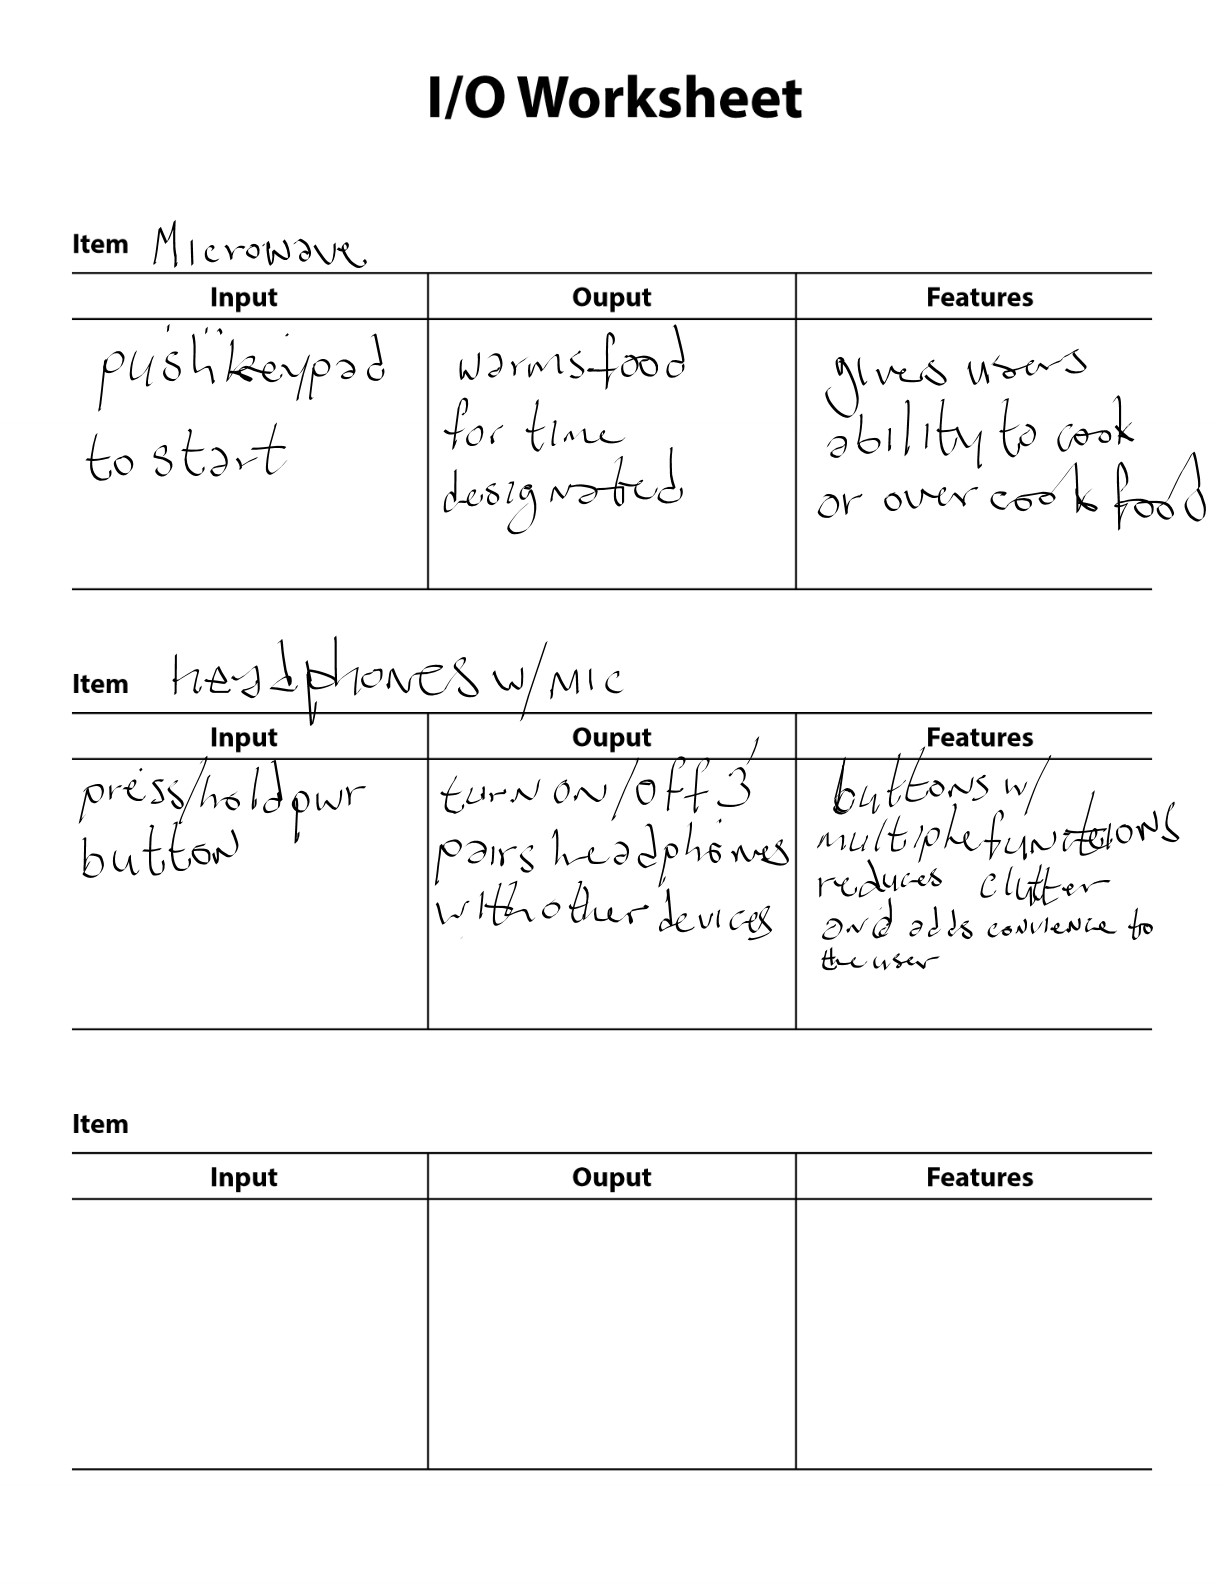 I/O Worksheet
Item Microwave
Input Ouput Features
push keypad
to start
warms food
for time
designated
gives users
ability to cook
or over cook food
Item headphones w/mic
Input Ouput Features
press/hold pwr
button
turn on/off 3
pairs headphones
with other devices
buttons w/
multiple functions
reduces clutter
and adds convience to
the user
Item
Input Ouput Features